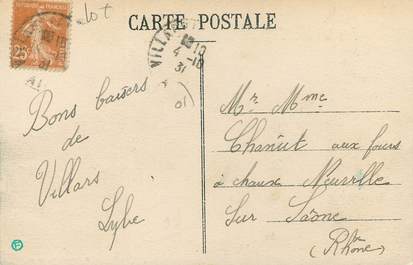 Lot
CARTE POSTALE
25
VILLA
18
4 -10
31
Bons baisers
de
Villars
Mr. Mme
Chanut aux fours
à chaux Neuville
Sur Saône
(Rhône)